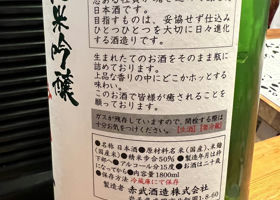 純米吟醸
日本酒です。
目指すものは、妥協せず仕込み
ひとつひとつを大切に日々進化
する酒造りです。
生まれたてのお酒をそのまま瓶に
詰めております。
上品な香りの中にどこかホッとする
味わい。
このお酒で皆様が癒されることを
願っております。
ガスが残していますので、開栓する際は
十分お気をつけください。
●名称 日本酒 ●原材料名 米(国産)、米麹
(国産米) ●精米歩合50% ●製造年月は枠
下部へ ●アルコール分15度
●内容量1800ml
●保存方法 冷蔵庫にて保存
製造者 赤武酒造株式会社